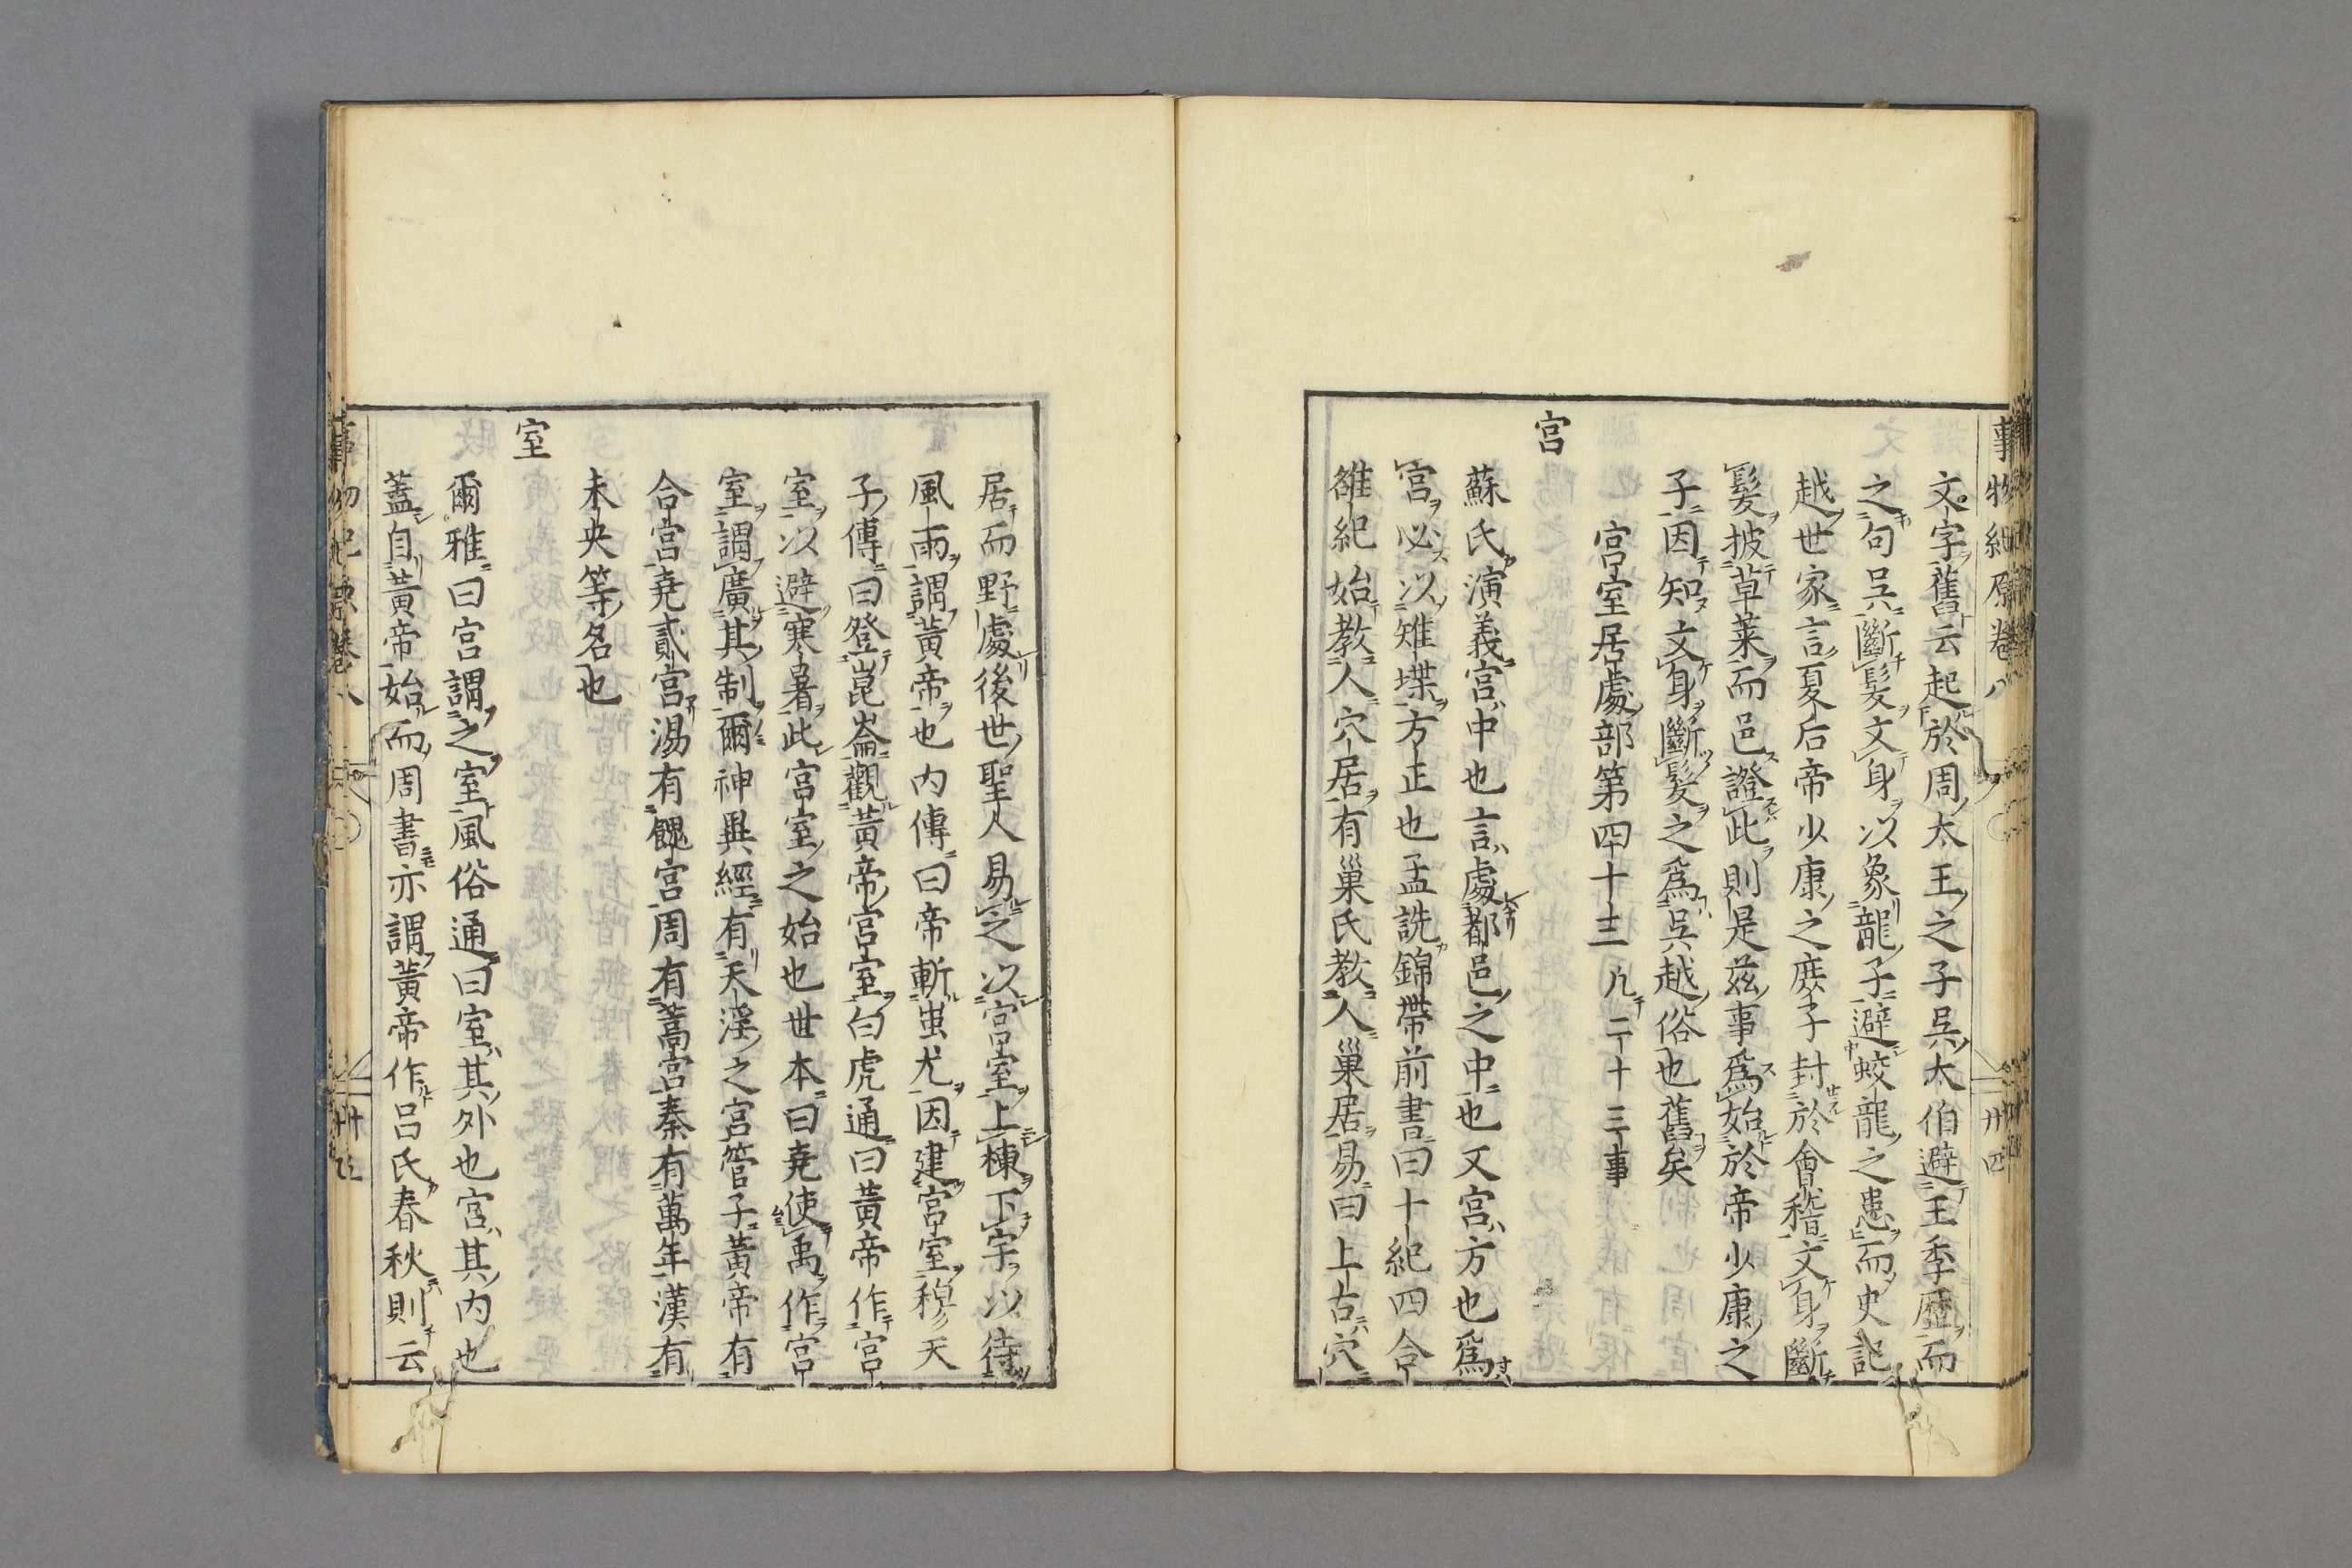 事物紀原卷八
廿四
文字舊云起於周太王之子吳太伯避王季歷而
之句吳斷髮文身以象龍子避蛟龍之患而史記
越世家言夏后帝少康之庶子封於會稽文身斷
髮披草萊而邑證此則是茲事爲始於帝少康之
子因知文身斷髮之爲吳越俗也舊矣
宮室居處部第四十三 凡二十三事
宮
蘇氏演義宮中也言處都邑之中也又宮方也爲
宮必以雉堞方正也孟詵錦帶前書曰十紀四合
雒紀始教人穴居有巢氏教人巢居易曰上古穴
居而野處後世聖人易之以宮室上棟下宇以待
風雨謂黃帝也内傳曰帝斬蚩尤因建宮室穆天
子傳曰登崑崙觀黃帝宮室白虎通曰黃帝作宮
室以避寒暑此宮室之始也世本曰堯使禹作宮
室謂廣其制爾神異經有天淫之宮管子黃帝有
合宮堯貳宮湯有䭒宮周有蒿宮秦有萬年漢有
未央等名也
室
爾雅曰宮謂之室風俗通曰室其外也宮其内也
蓋自黃帝始而周書亦謂黃帝作呂氏春秋則云